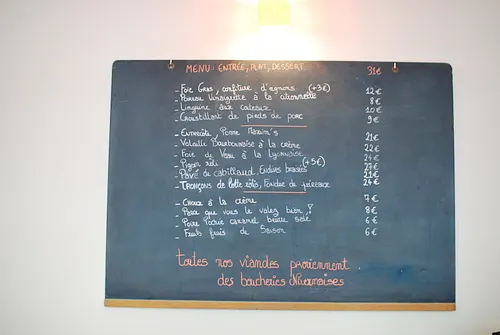 MENU: ENTRÉE, PLAT, DESSERT 31€
- Foie Gras, confiture d'oignons (+3€) 12€
- Poireau Vinaigrette à la 8€
- Linguine aux couteaux 10€
- Croustillant de pieds de porc 9€
- Entrecôte, Pomme Maxim's 21€
- Volaille Bourbonnaise à la crème 22€
- Foie de Veau à la Lyonnaise 24€
- Pigeon rôti (+5€) 27€
- Pavé de cabillaud, Endives braisées 21€
- Tronçons de lotte rôtis, Fondue de poireaux 24€
- Choux à la crème 7€
- Parce que vous le valez bien! 8€
- Poire Pochée caramel beurre salé 6€
- Fruits frais de Saison 6€
toutes nos viandes proviennent
des boucheries Nivernaises